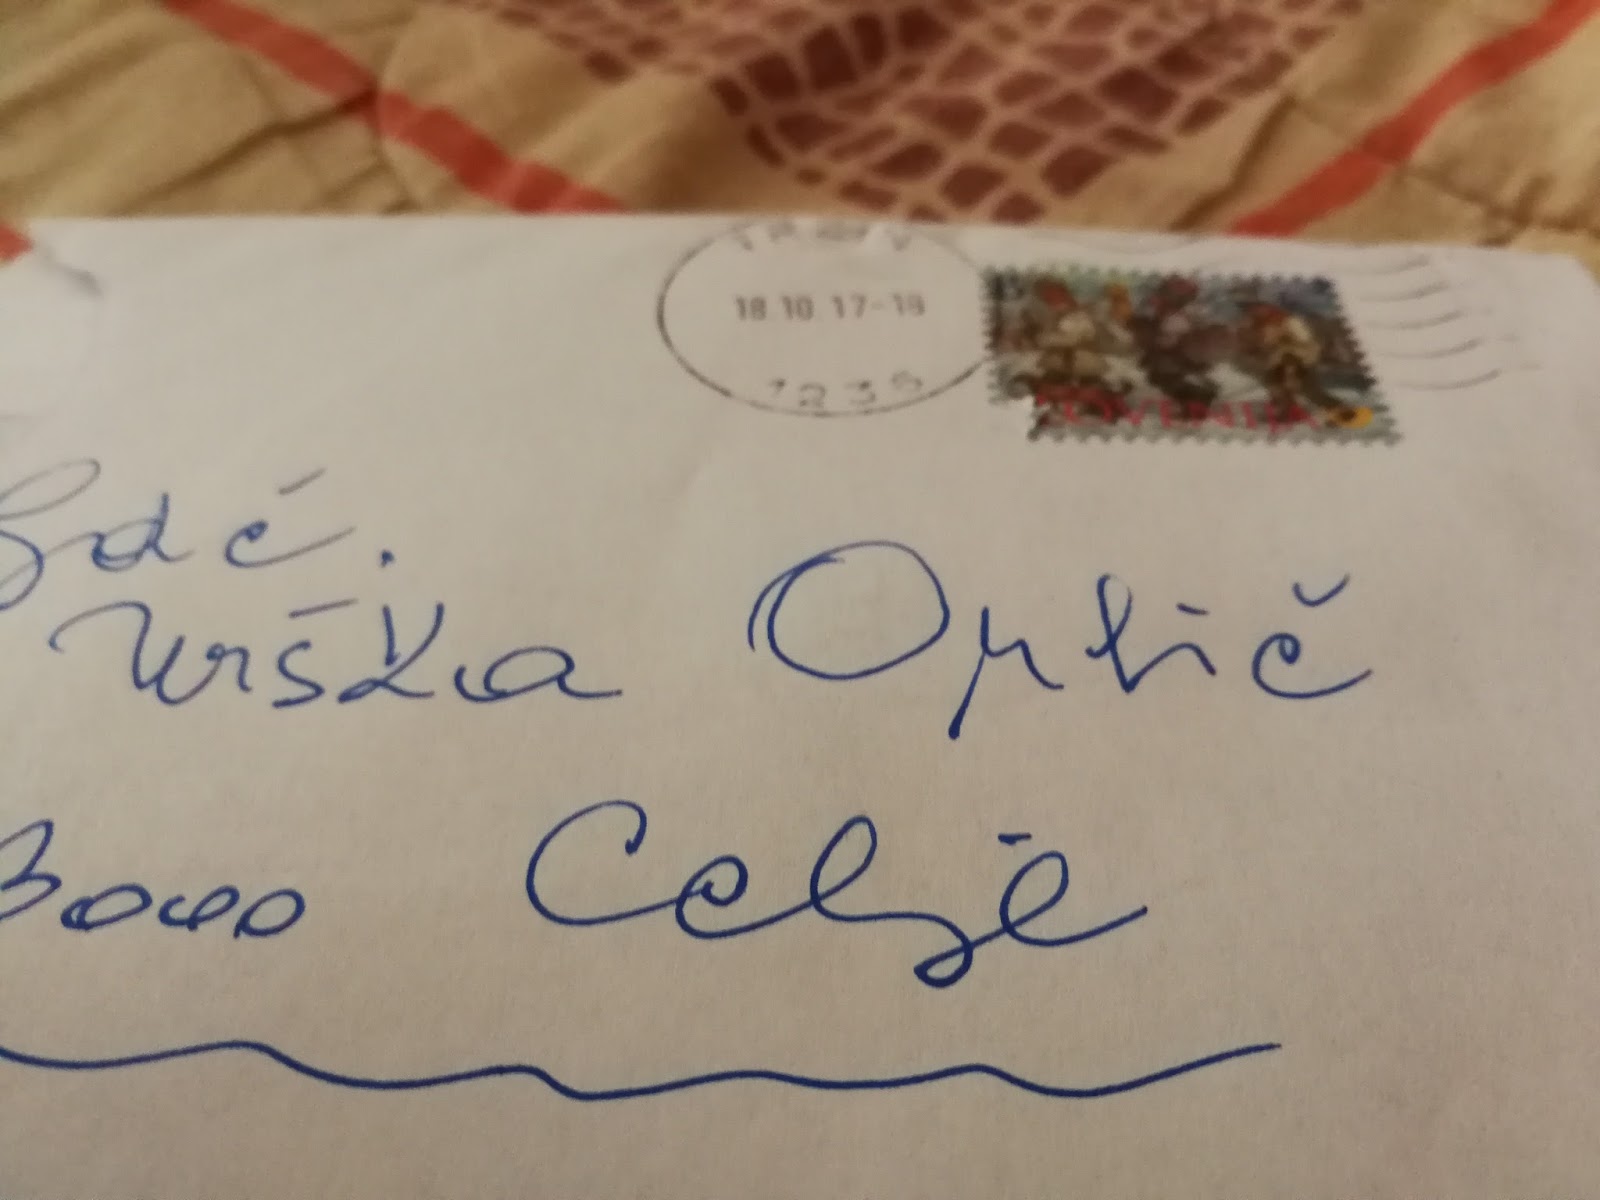 18.10.17-19
1235
SLOVENIJA
Gdč.
Urška Orlič
3000 Celje